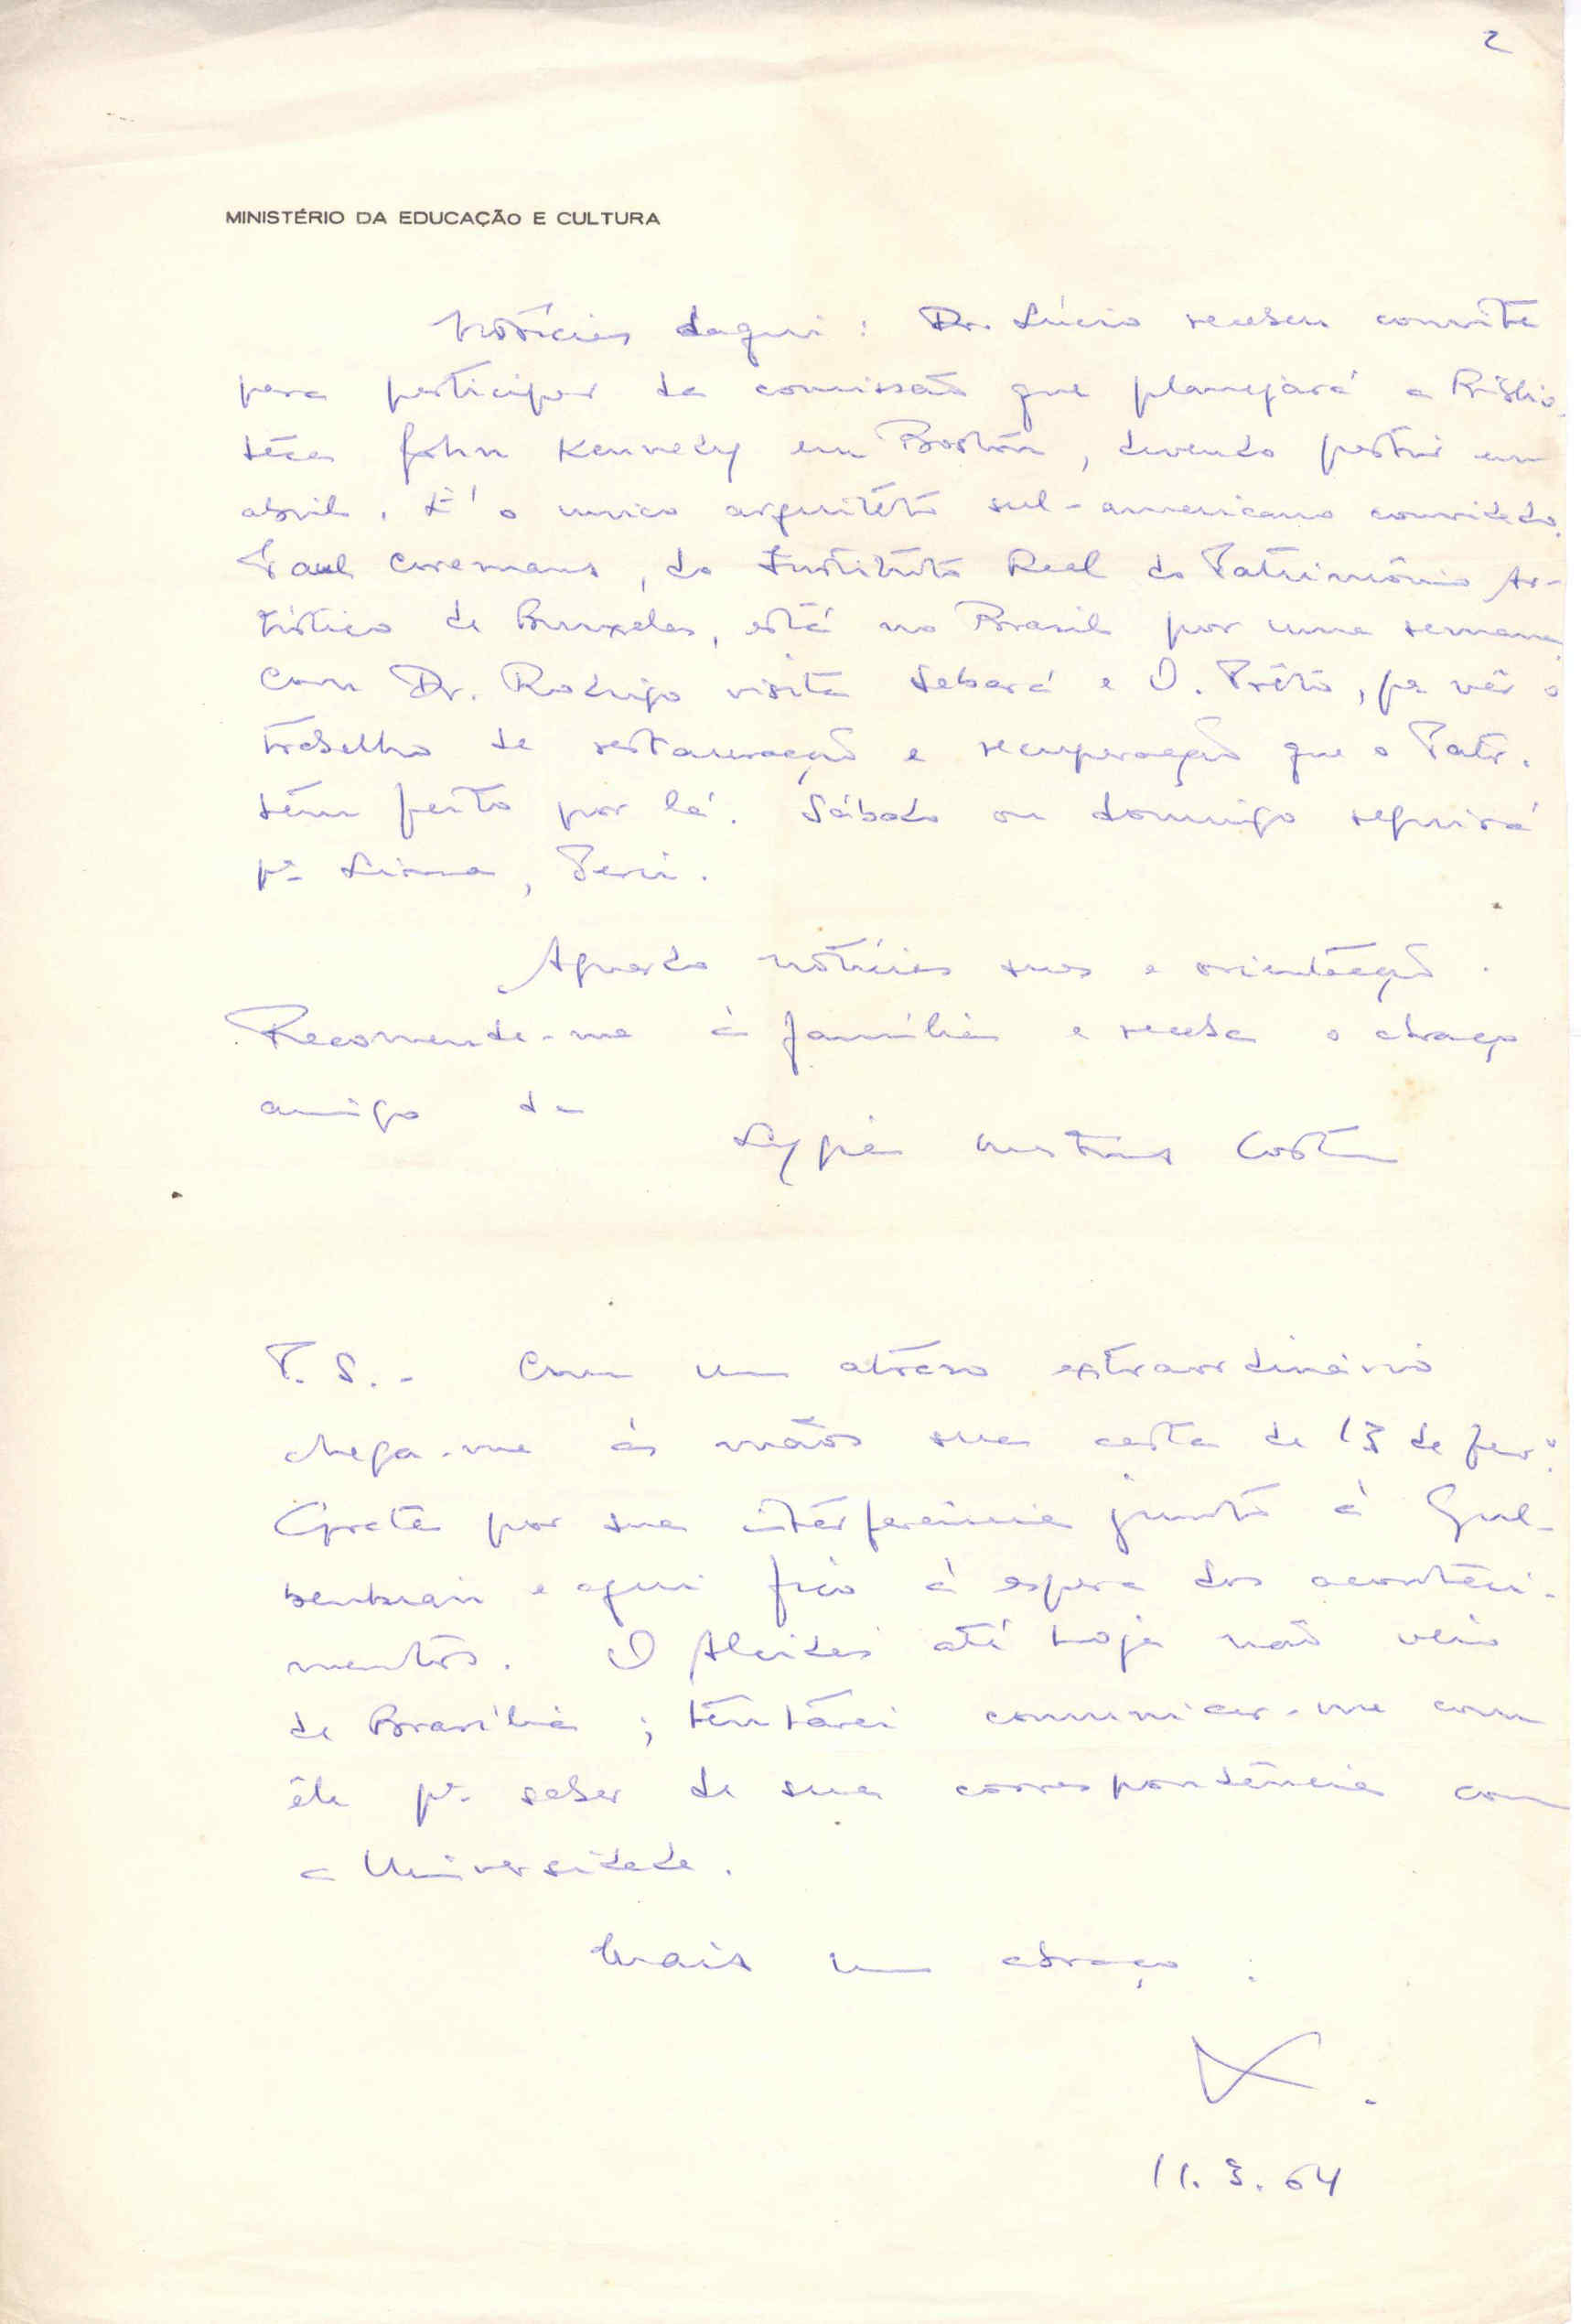 2
MINISTÉRIO DA EDUCAÇÃO E CULTURA
Notícias daqui : Dr. Lúcio recebeu convite
para participar da comissão que planejará a Biblio-
téca John Kennedy em Boston, devendo partir em
abril. É o unico arquitéto sul-americano convidado.
Paul Coremans, do Instituto Real do Patrimônio Ar-
tístico de Bruxelas, está no Brasil por uma semana.
Com Dr. Rodrigo visita Sabará e O. Prêto, pa vêr o
trabalho de restauração e recuperação que o Patr.
tem feito por lá. Sábado ou domingo seguirá
pª Lima, Perú.
Aguardo notícias suas e orientação.
Recomende-me à família e receba o abraço
amigo de
Lygia Martins Costa
P. S. - Com um atraso extraordinário
chega-me às mãos sua carta de 13 de fevº.
Grata por sua interferência junto à Gul-
benkian e aqui fico à espera dos aconteci-
mentos. O Alcides até hoje não veio
de Brasília ; tentarei comunicar-me com
êle pª saber de sua correspondência com
a Universidade.
Mais um abraço :
11.3.64